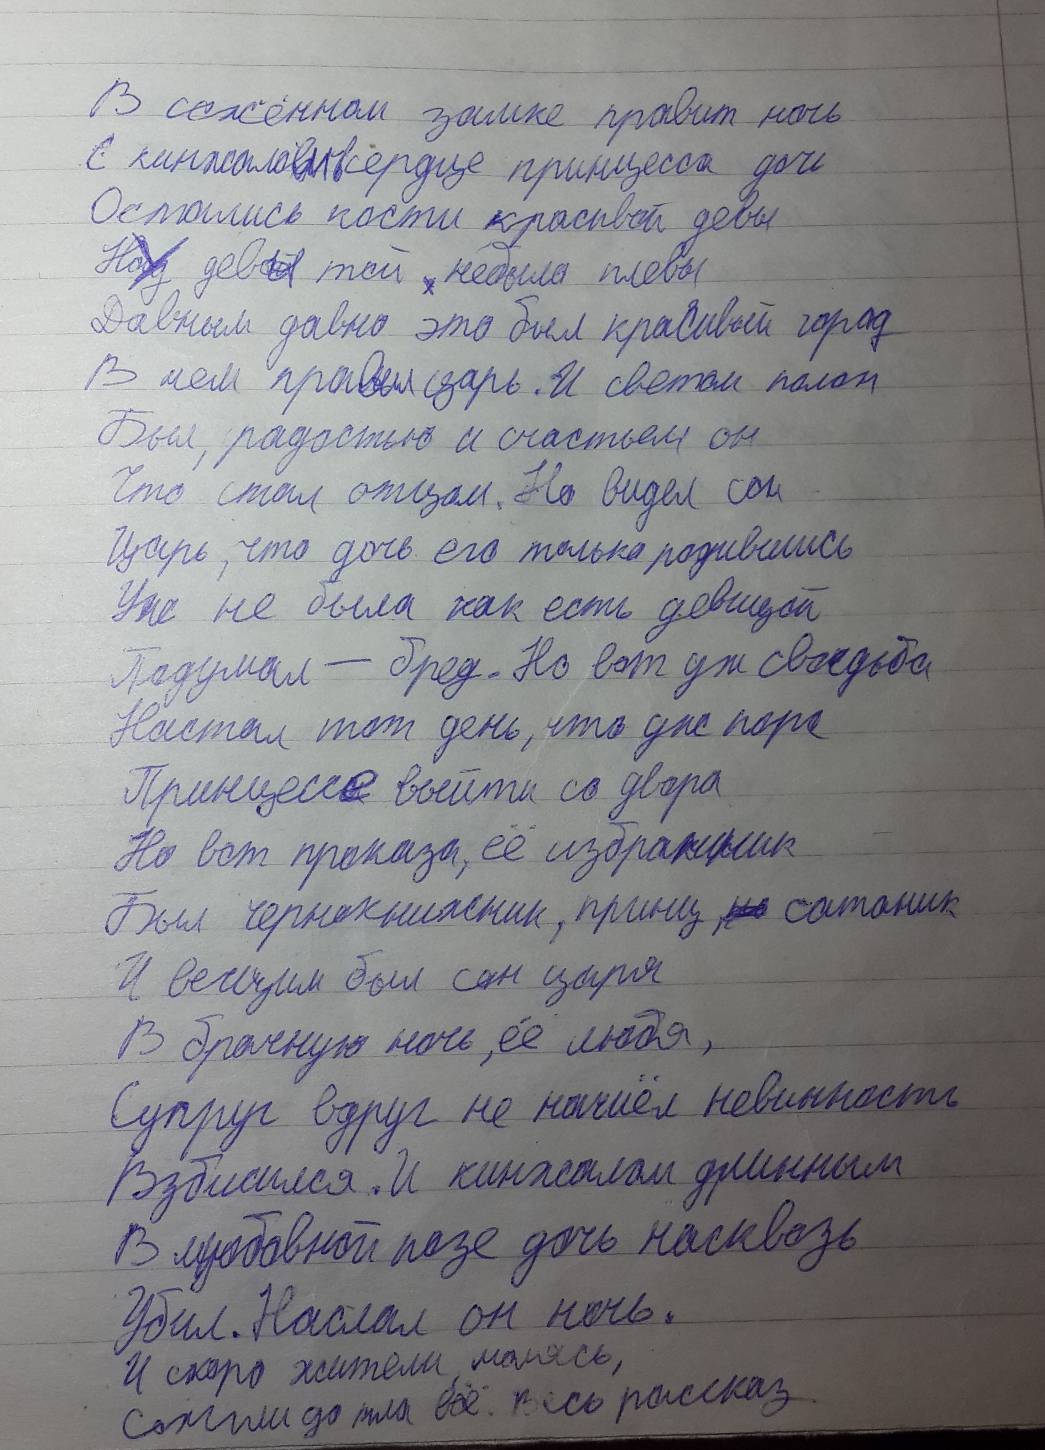 В сожённом замке правит ночь
С кинжалом в сердце принцесса дочь
Остались кости красивой девы
На девы той небыло плевы
Давным давно это был красивый город
В нем правил царь. И светом полон
Был, радостью и счастьем он
Что стал отцом. Но видел сон
Царь, что дочь его только родившись
Уже не была как есть девицей
Подумал — бред. Но вот уж свадьба
Настал тот день, что уж пора
Принцессе выйти со двора
Но вот проказа, её избранник
Был чернокнижник, принц, сатаник
И вещим был сон царя
В брачную ночь, её любя,
Супруг вдруг не нашёл невинность
Взбисился. И кинжалом длинным
В любовной позе дочь насквозь
Убил. Наслал он ночь.
И скоро жители, молясь,
Сожгли до тла всё. Весь рассказ